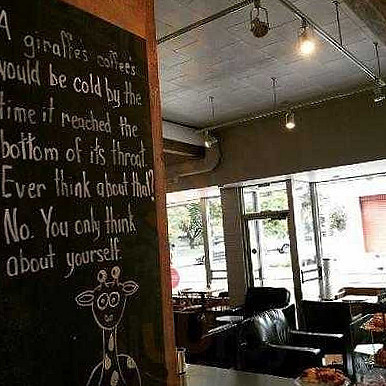 A giraffe's coffees
would be cold by the
time it reached the
bottom of its throat.
Ever think about that?
No. You only think
about yourself.